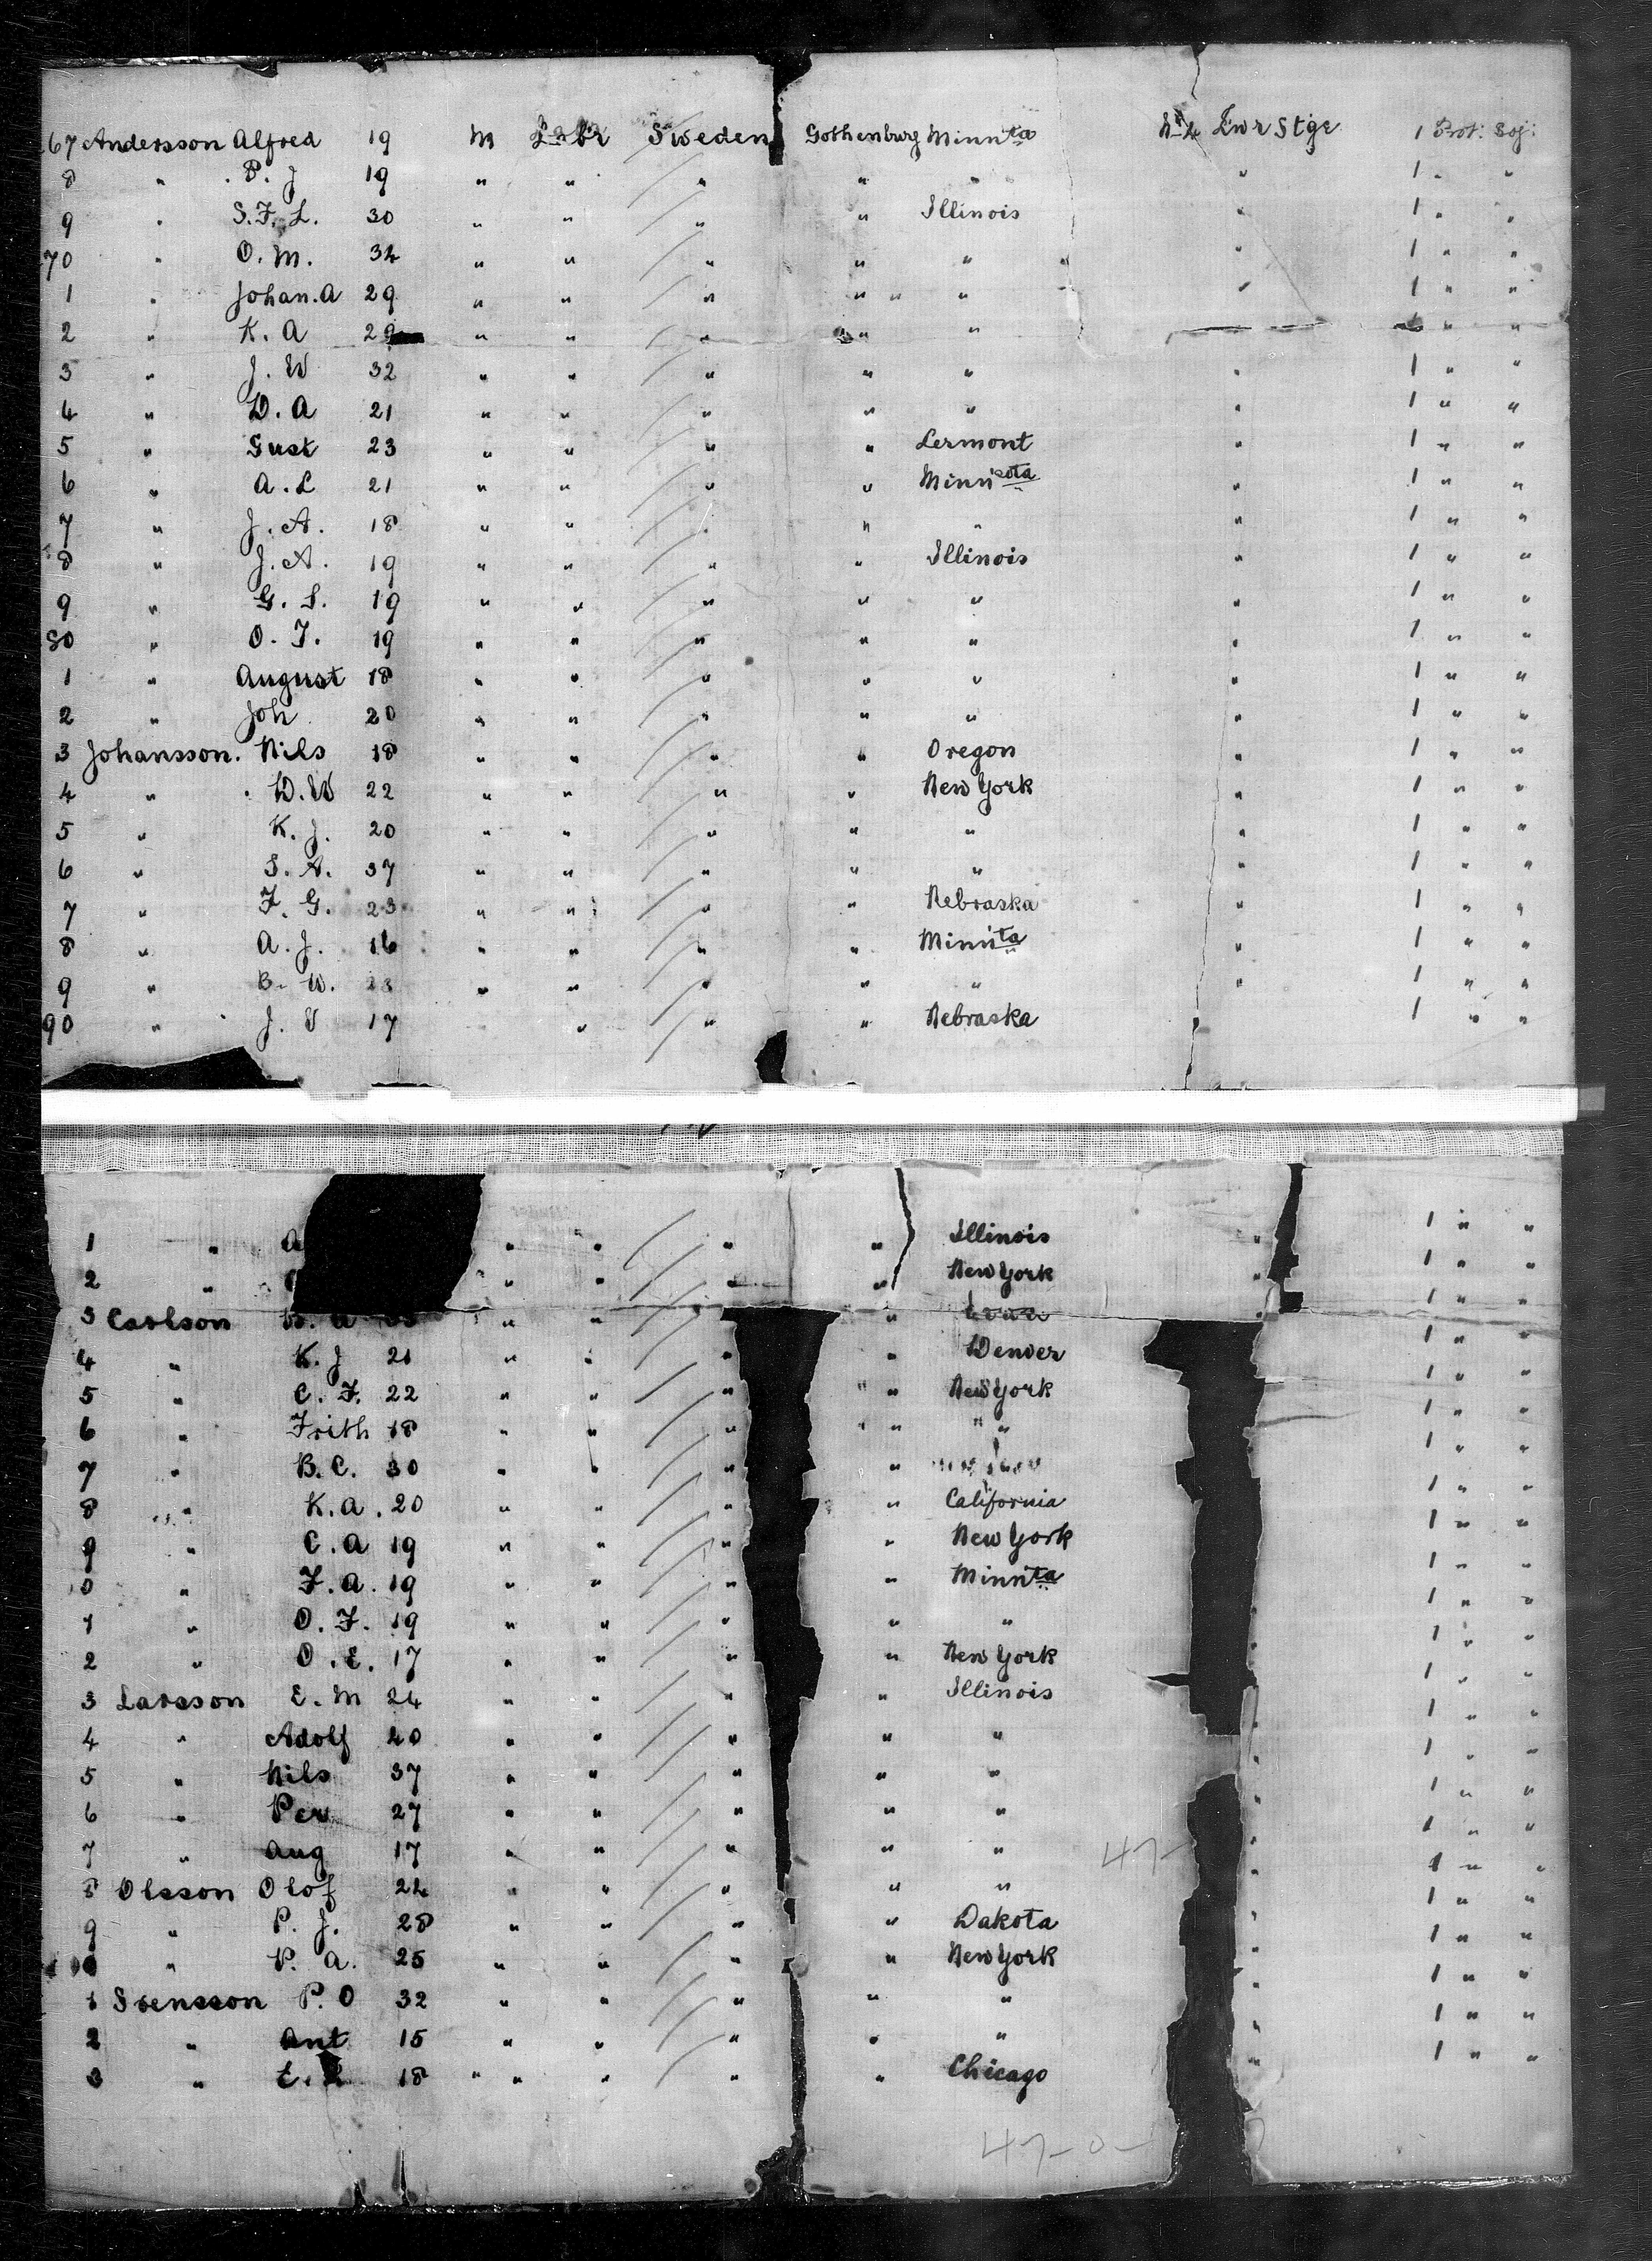 67 Andersson Alfred 19 M Labr Sweden Gothenburg Minnta No 2 Lwr Stge 1 Prot: Soj:
8 " P. J 19 " " " " " " 1 " "
9 " S. F. L. 30 " " " " Illinois " 1 " "
70 " O. M. 34 " " " " " " 1 " "
1 " Johan. A 29 " " " " " " " 1 " "
2 " K. A 29 " " " " " " "
3 " J. W 32 " " " " " " 1 " "
4 " D. A 21 " " " " " " 1 " "
5 " Gust 23 " " " " Lermont " 1 " "
6 " A. L 21 " " " " Minnisota " 1 " "
7 " J. A. 18 " " " " " " 1 " "
8 " J. A. 19 " " " " Illinois " 1 " "
9 " G. S. 19 " " " " " " 1 " "
80 " O. F. 19 " " " " " " 1 " "
1 " August 18 " " " " " " 1 " "
2 " Joh 20 " " " " " " 1 " "
3 Johansson. Nils 18 " " " " Oregon " 1 " "
4 " D. W 22 " " " " New York " 1 " "
5 " K. J. 20 " " " " " " 1 " "
6 " S. A. 37 " " " " " " 1 " "
7 " F. G. 23 " " " " Nebraska " 1 " "
8 " A. J. 16 " " " " Minnta " 1 " "
9 " B. W. 23 " " " " " " 1 " "
90 " J. V 17 " " " Nebraska 1 " "
1 " A " " " " Illinois " 1 " "
2 " " " " " New York " 1 " "
3 Carlson A " " " " 1 " "
4 " K. J 21 " " " " Denver 1 " "
5 " C. F. 22 " " " " New York 1 " "
6 " Frith 18 " " " " " " 1 " "
7 " B. C. 30 " " " " 1 " "
8 " K. A. 20 " " " " California 1 " "
9 " C. A 19 " " " " New York 1 " "
0 " F. A. 19 " " " " Minnta 1 " "
1 " O. F. 19 " " " " " " 1 " "
2 " O. E. 17 " " " " New York " 1 " "
3 Larsson E. M 24 " " " " Illinois " 1 " "
4 " Adolf 20 " " " " " " 1 " "
5 " Nils 37 " " " " " " 1 " "
6 " Per 27 " " " " " " 1 " "
7 " Aug 17 " " " " " 47- " 1 " "
8 Olsson Olof 24 " " " " " " 1 " "
9 " P. J. 28 " " " " Dakota " 1 " "
" P. A. 25 " " " " New York " 1 " "
1 Svensson P. O 32 " " " " " " 1 " "
2 " Ant 15 " " " " " " 1 " "
3 " E. 18 " " " " " Chicago " 1 " "
47-0-